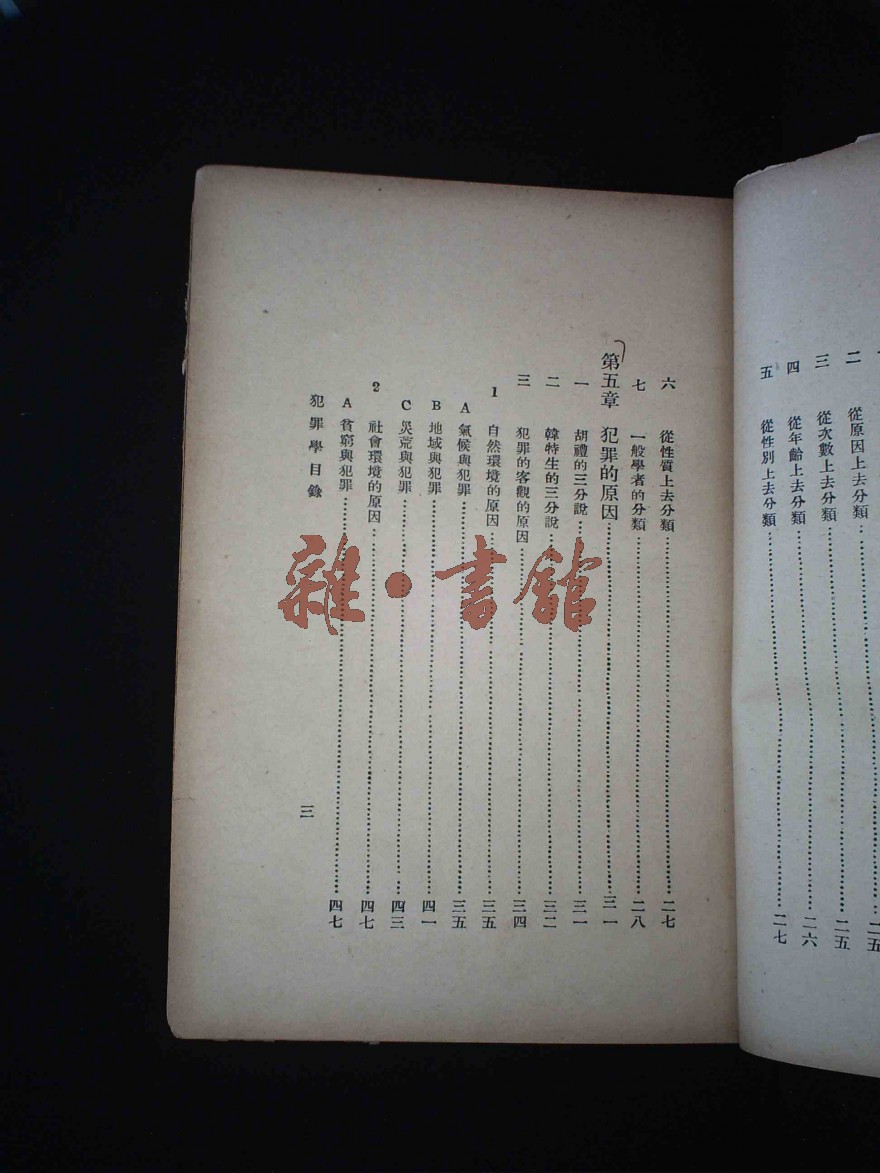 二 從原因上去分類 二五
三 從次數上去分類 二五
四 從年齡上去分類 二六
五 從性別上去分類 二七
六 從性質上去分類 二七
七 一般學者的分類 二八
第五章 犯罪的原因 三一
一 胡禮的三分說 三一
二 韓特生的三分說 三二
三 犯罪的客觀的原因 三四
1 自然環境的原因 三五
A 氣候與犯罪 三五
B 地域與犯罪 四一
C 災荒與犯罪 四三
2 社會環境的原因 四七
A 貧窮與犯罪 四七
犯罪學目錄 三
雜·書館